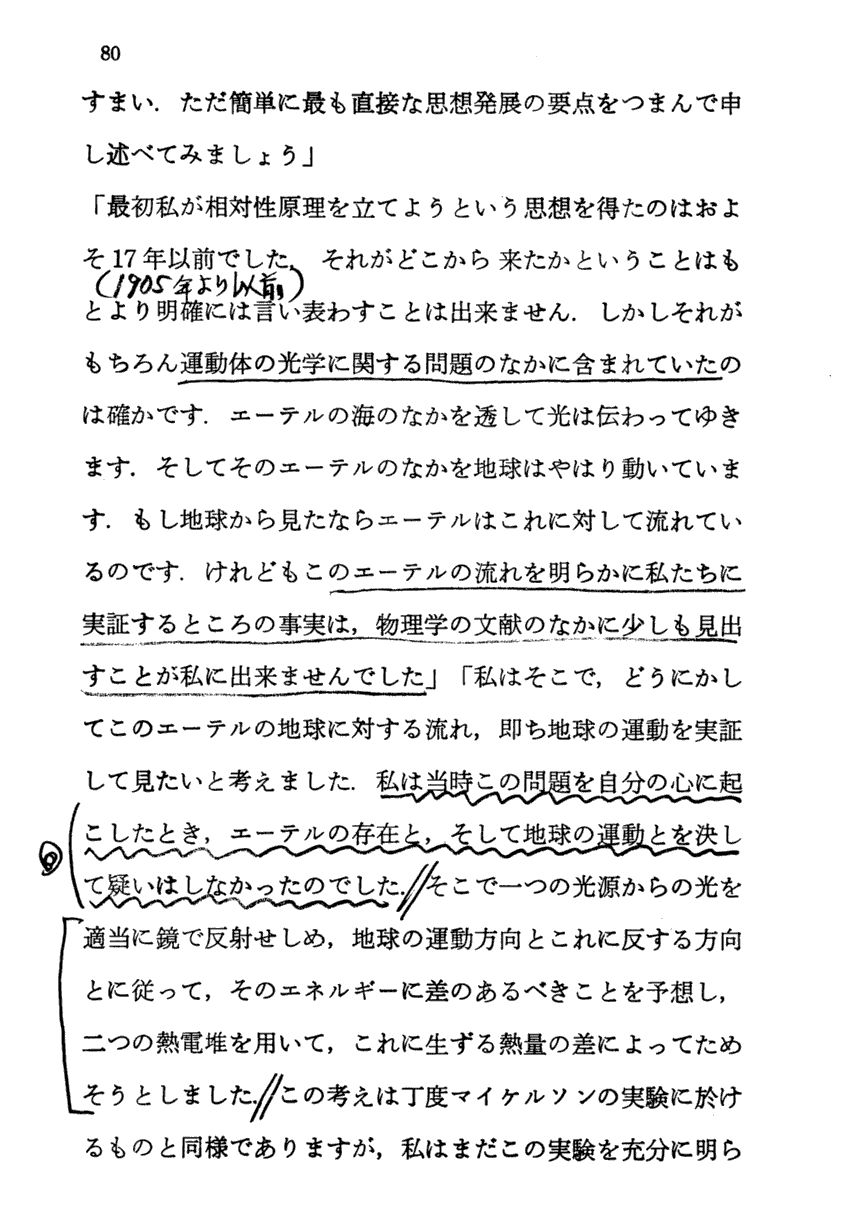 80
すまい．ただ簡単に最も直接な思想発展の要点をつまんで申
し述べてみましょう」
「最初私が相対性原理を立てようという思想を得たのはおよ
そ17年以前でした．それがどこから来たかということはも
(1905年より以前)
とより明確には言い表わすことは出来ません．しかしそれが
もちろん運動体の光学に関する問題のなかに含まれていたの
は確かです．エーテルの海のなかを透して光は伝わってゆき
ます．そしてそのエーテルのなかを地球はやはり動いていま
す．もし地球から見たならエーテルはこれに対して流れてい
るのです．けれどもこのエーテルの流れを明らかに私たちに
実証するところの事実は，物理学の文献のなかに少しも見出
すことが私に出来ませんでした」「私はそこで，どうにかし
てこのエーテルの地球に対する流れ，即ち地球の運動を実証
して見たいと考えました．私は当時この問題を自分の心に起
こしたとき，エーテルの存在と，そして地球の運動とを決し
て疑いはしなかったのでした．//そこで一つの光源からの光を
適当に鏡で反射せしめ，地球の運動方向とこれに反する方向
とに従って，そのエネルギーに差のあるべきことを予想し，
二つの熱電堆を用いて，これに生ずる熱量の差によってため
そうとしました．//この考えは丁度マイケルソンの実験に於け
るものと同様でありますが，私はまだこの実験を充分に明ら